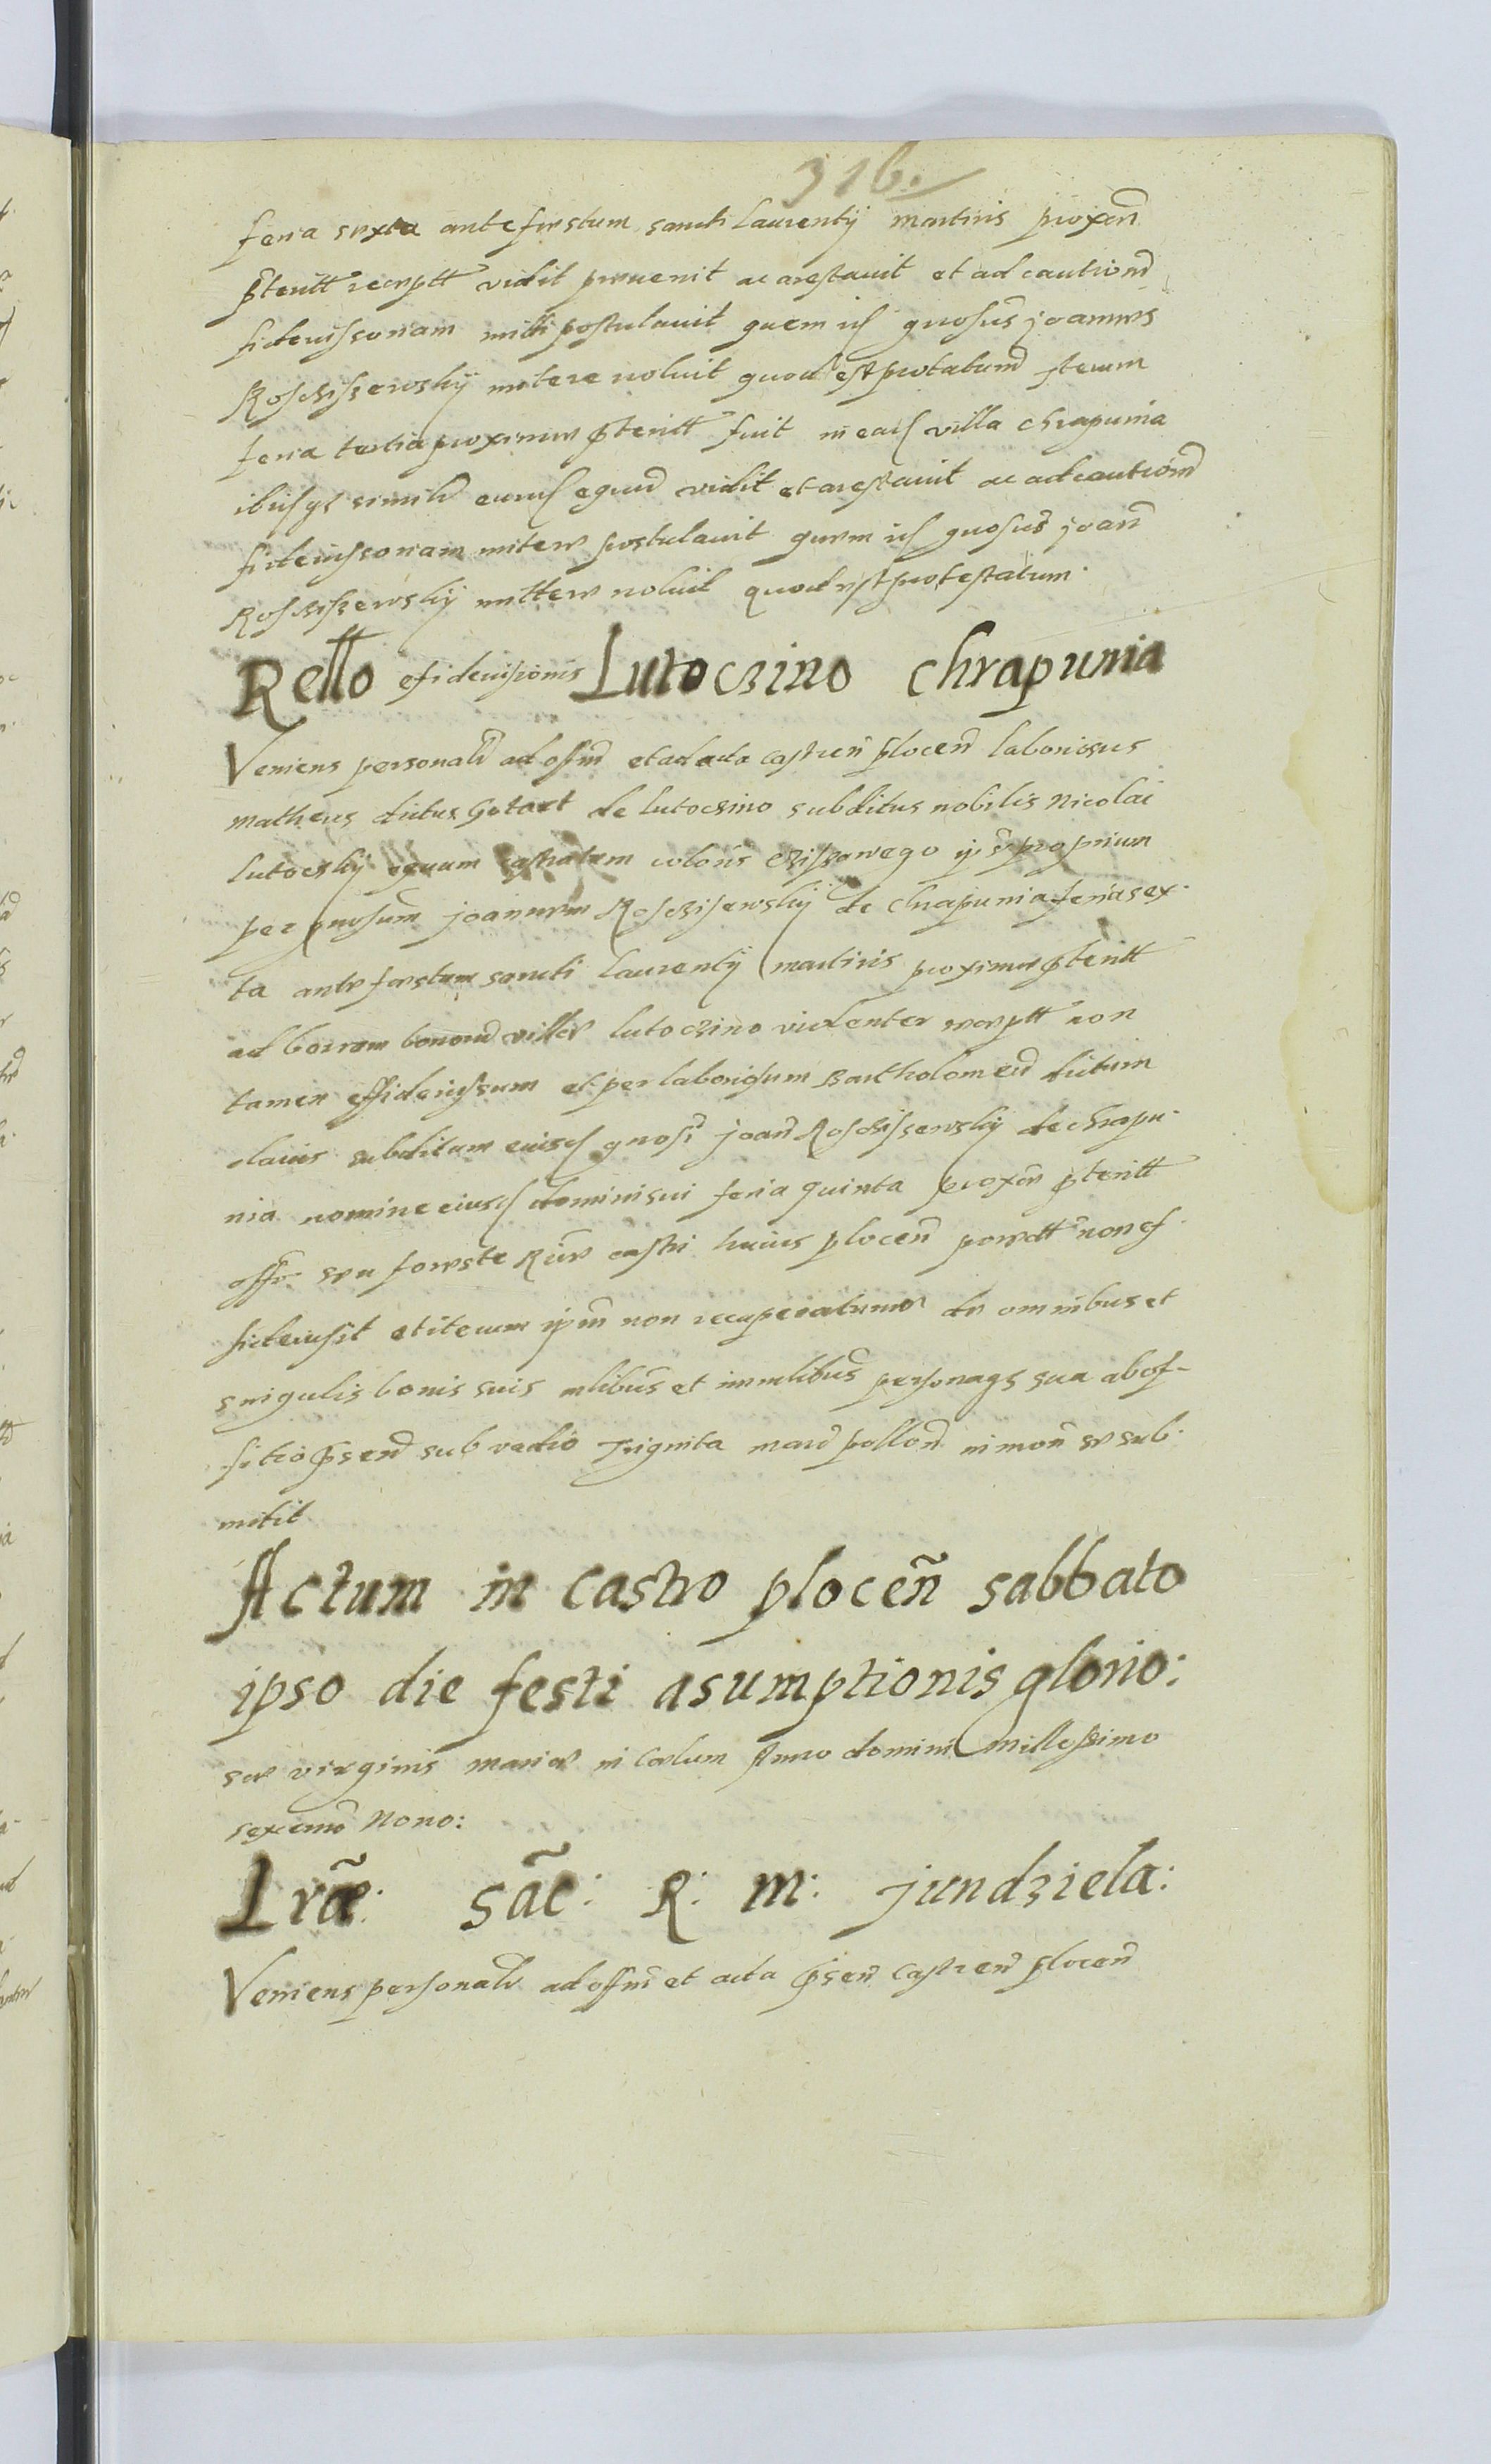 316.
feria sexta ante festum sancti Laurentij martiris proxen̄
p̄teritt receptt vidit prevenit ac arestavit et ad cautionem
fideiussoriam mitti postulavit quem id gnosus joannes
Rosciszewskij mitere noluit quod est protatum Iterum
feria tertia proxime p̄teritt fuit in ead villa chrapunia
ibiq3 similr eund equm vidit et arestavit ac ad cautionem
fideiussoriam mitere postulavit quem id gnosus joan̄
Rosciszewskij mittere noluit quod est protestatum.
Rello efideiusionis Lutoczino chrapunia
Veniens personalr ad offm et ad acta castren̄ plocen̄ laboriosus
matheus dictus Gotart de lutoczino subditus nobilis Nicolai
lutoczkij equum castratum coloris cziszawego
per gnosum joannem Rosciszewskij de chrapunia feria sex-
ta ante festum sancti laurentij martiris proxime p̄teritt
ad borram bonorum ville lutoczino violenter receptt non
tamen effideiussum et per laboriosum Bartholomeum dictum
subditum eiusd gnosi joan̄ Rosciszewskij de chrapu-
nia nomine eiusd domini sui feria quinta proxime p̄teritt
offo seu foreste castri huius plocen̄ non ef-
fideiusit et iterum ipm non recuperaturum de omnibus et
singulis bonis suis mlibus et immlibus personaq3 sua ab of-
fitio p̄sen̄ sub vadio Triginta marc pollon̄ in mon̄ se sub-
mitit
Actum in castro plocen̄ sabbato
ipso die festi asumptionis glorio:
sae virginis mariae in Caelum Anno domini millesimo
sexcenmo Nono:
Lrae: sac: R: m: jundziela:
Veniens personalr ad offm et acta p̄sen̄ castren̄ plocen̄